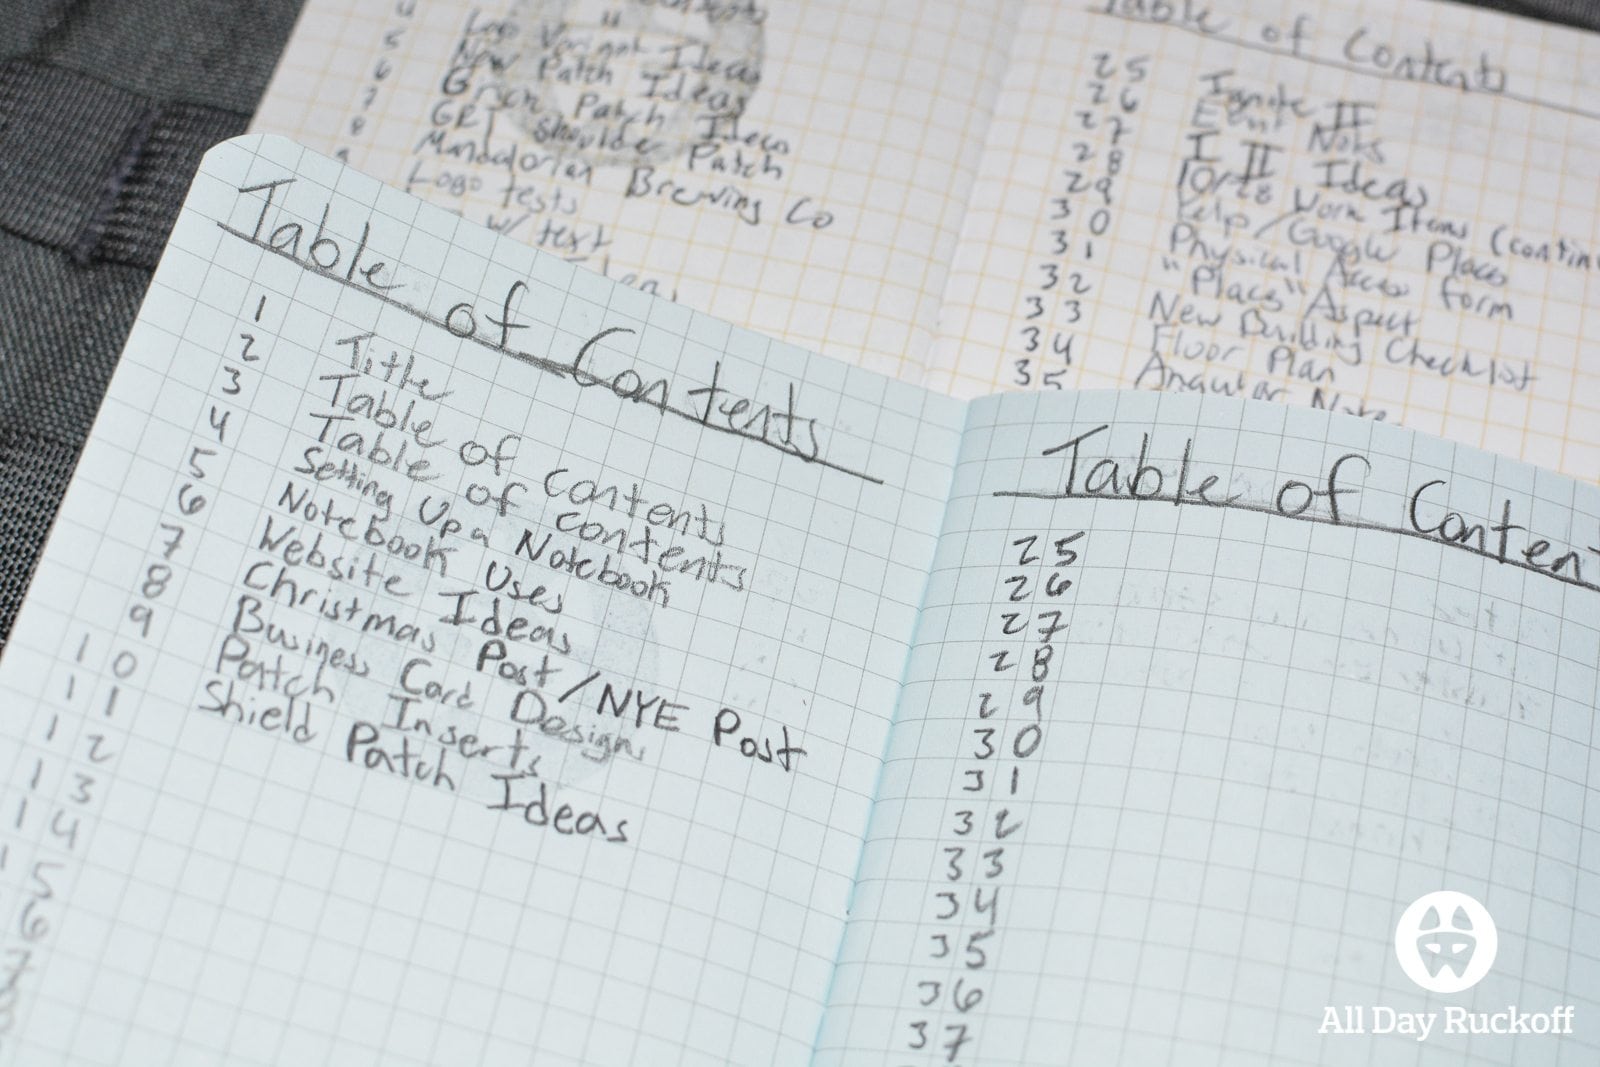 "
4 Logo Variant Ideas
5 New Patch Ideas
6 Patch Ideas
7 GRT Shoulder Patch
8 Mandalorian Brewing Co
9 Logo tests
w/ text
Table of Contents
25 Ignite II
26 Event Notes
27 I II Ideas
28 Work Items (contin
29 Yelp/Google Places
30 Physical Access Form
31 "Places" Aspect
32 New Building Checklist
33 Floor Plan
34 Angular Note
35
Table of Contents
1 Title
2 Table of Contents
3 Table of Contents
4 Setting Up a Notebook
5 Notebook Uses
6 Website Ideas
7 Christmas Post/NYE Post
8 Business Card Designs
9 Patch Inserts
10 Shield Patch Ideas
11
12
13
14
15
6
7
Table of Conten
25
26
27
28
29
30
31
32
33
34
35
36
37
All Day Ruckoff